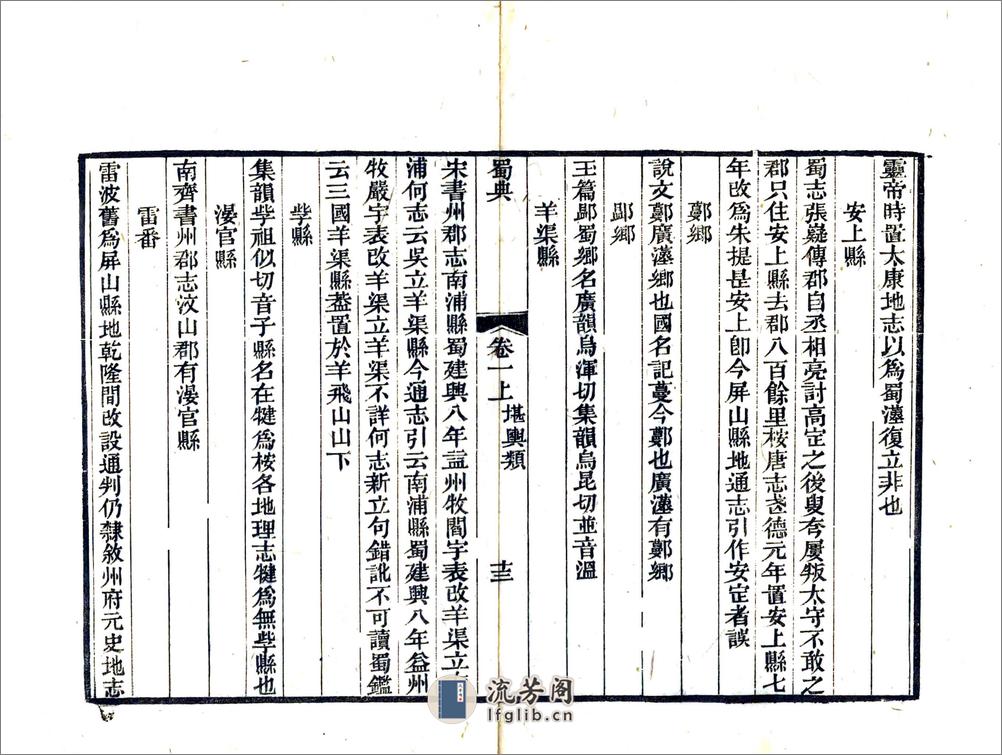 靈帝時置太康地志以為蜀漢復立非也
安上縣
蜀志張嶷傳郡自丞相亮討高定之後叟夸屢叛太守不敢之
郡只住安上縣去郡八百餘里桉唐志武德元年置安上縣七
年改為朱提是安上卽今屏山縣地通志引作安定者誤
鄤鄉
說文鄤廣漢鄉也國名記蔓今鄤也廣漢有鄤鄉
䣝鄉
玉篇䣝蜀鄉名廣韻烏渾切集韻烏昆切並音溫
羊渠縣
蜀典
卷一上 堪輿類
十三
宋書州郡志南浦縣蜀建興八年益州牧閻宇表改羊渠立
浦何志云吳立羊渠縣今通志引云南浦縣蜀建興八年益州
牧嚴宇表改羊渠立羊渠不詳何志新立句錯訛不可讀蜀鑑
云三國羊渠縣葢置於羊飛山山下
㜽縣
集韻㜽祖似切音子縣名在犍為桉各地理志犍為無㜽縣也
漫官縣
南齊書州郡志汶山郡有漫官縣
雷番
雷波舊為屏山縣地乾隆間改設通判仍隸敘州府元史地志
流芳阁
lfglib.cn